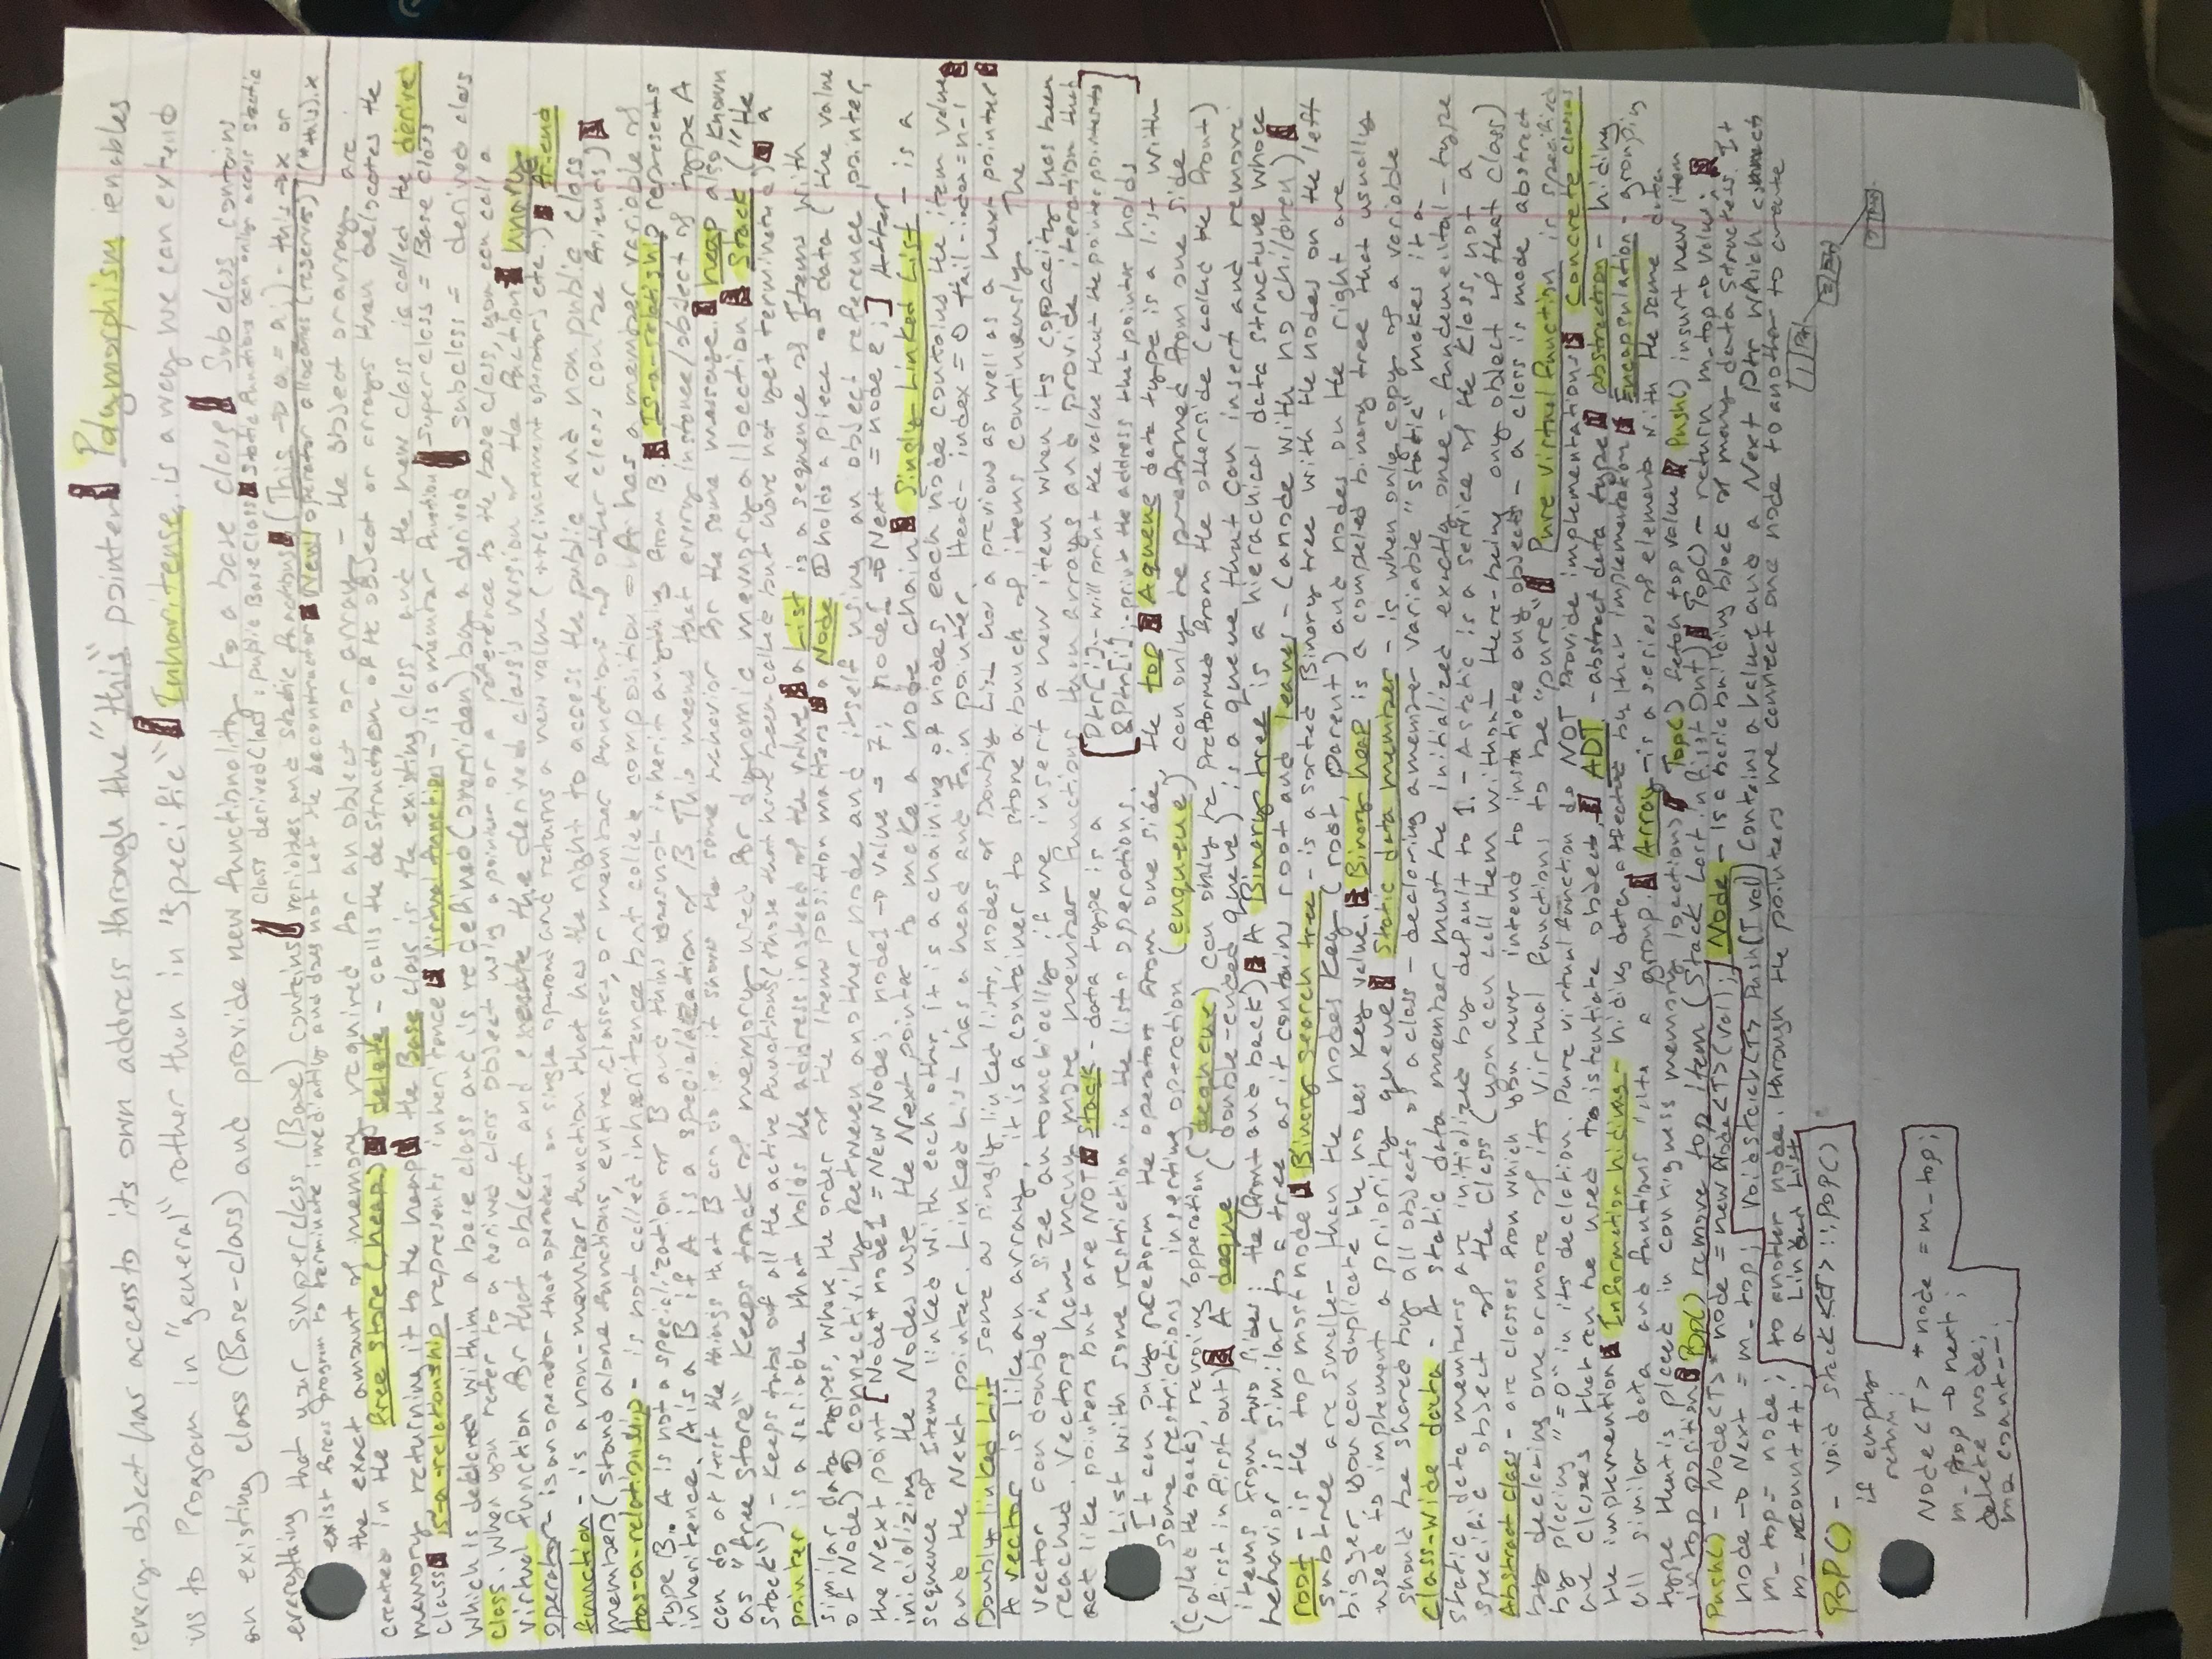 every object has access to its own address through the "this" pointer Polymorphism enables
us to program in "general" rather than in "specific" Inheritense is a way we can extend
an existing class (Base-class) and provide new functionality to a base class Subclass contains
everything that your superclass (Base) contains
class derivedClass: public BaseClass static functions can only access static
variobles and static functions (This -> a = a;) - this->x or
exist forces program to terminate immediatly and does not let the deconstructor New operator allocates (reserves) (*this).x
the exact amount of memory required for an object or array - the object or arrays are
created in the free store (heap) delete - calls the destruction of the object or arrays then delocates the
memory returning it to the heap the Base class is the existing class, and the new class is called the derive
class is-a-relationship represents inheritance Virtual function - is a member function superclass = Base class
which is delcred within a base class and is re defined (overriden) by a derived subclass = derived class
class. When you refer to a derived class object using a pointer or a reference to the base class, you can call a
virtual function for that object and execute the derived class's version of the function unary
operator - is an operator that operates on single operand and returns a new value (++ increment operators etc.) friend
function - is a non-member function that has the right to access the public and non public class
members (stand alone functions, entire classes, or member functions of other class can be friends)
has-a-relationship - is not called inheritence but called composition - A has a member variable of
type B. A is not a specialization of B and thus doesnot inherit anything from B. Is-a-relationship represents
inheritence. A is a B if A is a specialization of B. This means that every instance/object of type A
can do at least the things that B can do i.e. it show the same behavior for the same message. heap also known
as "free store" keeps track of memory used for dynamic memory allocation Stack ("the
stack") - keeps tabs of all the active functions (those that have been called but have not yet terminated) a
pointer is a varioble that holds the address instead of the value a List is a sequence of Items with
similar data types, where the order of the items position matters a Node ① holds a piece of data (the value
of Node) ② connectivity between another node and itself using an object reference pointer,
the next point [Node* node1 = New Node; node1 -> value = 7; node1 -> Next = node 2;] After
inicializing the Nodes use the Next pointer to make a node chain Singly Linked List - is a
sequence of Items linked with each other it is a chaining of nodes, each node contains the item value
and the Next pointer. Linked List has a head and tail pointer Head - index = 0 tail - index = n-1
Doubly linked list same as singly linked lists, nodes of Doubly List has a previous as well as a next pointer
A vector is like an array, it is a container to store a bunch of items continuously. The
vector can double in size automatically if we insert a new item when its capacity has been
reached. Vectors have many more member functions than arrays and provide iteration that
act like pointers but are NOT stack - data type is a [Ptr[i] - will print the value that the pointer points to]
List with some restriction in the lists operations. [&Ptr[i] - print the address that pointer holds]
It can only preform the operation from one side, the top A queue data type is a list with
some restrictions, inserting operation (enqueue) can only be preformed from one side
(called the back), removing opperation (dequeue) can only be preformed from the otherside (called the front)
(first in first out) A deque (double-ended queue) is a queue that can insert and remove
items from two sides; the (front and back) A Binary tree is a hierachical data structure whose
behavior is similar to a tree as it contains root and leaves - (a node with no children)
root - is the top most node Binary search tree - is a sorted Binary tree with the nodes on the left
subtree are smaller than the nodes key (root, parent) and nodes on the right are
bigger you can duplicate the nodes key value. Binary heap is a compeled binary tree that usually
used to implement a priority queue Static data member - is when only copy of a variable
should be shared by all objects of a class - declaring a member variable "static" makes it a
class-wide data - A static data member must be initialized exactly once - fundemental-type
static data members are initialized by default to 1. - A static is a service of the class, not a
specific object of the class (you can call them without there being any object of that class)
Abstract class - are classes from which you never intend to instatiate any objects - a class is made abstract
by declaring one or more of its Virtual functions to be "pure" Pure virtual function is specified
by placing "=0" in its declation. Pure virtual function do NOT Provide implementations Concrete classes
are classes that can be used to istentiate objects ADT - abstract data type abstraction - hiding
the implemention Information hiding - hiding data affected by that implementation Encapsulation - grouping
all similar data and funtions into a group. Array - is a series of elements with the same data
type thent is placed in contiguess memory locations Top() fetch top value Push() insurt new item
in top position Pop() remove top item (Stack Last in first Out) Top() - return m-top -> value;
Push() - Node<T>* node = new Node<T>(val); Node - is a basic building block of many data structures. It
node -> Next = m-top; Void stack<T>::Push(T val) Contains a value and a Next Ptr which connect
m-top = node; to another node. through the pointers we connect one node to another to create
m-count++; a Linked List
POP() - void stack<T>::Pop()
if empty
return;
Node<T>* node = m-top;
m-top -> next;
delete node;
m-count--;